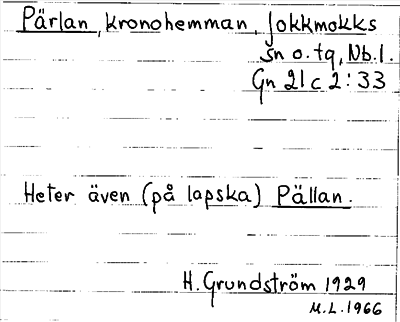 Pärlan, kronohemman, Jokkmokks
sn o. tg, Nb. l.
Gn 21 c 2:33
Heter även (på lapska) Pällan.
H. Grundström 1929
M.L. 1966